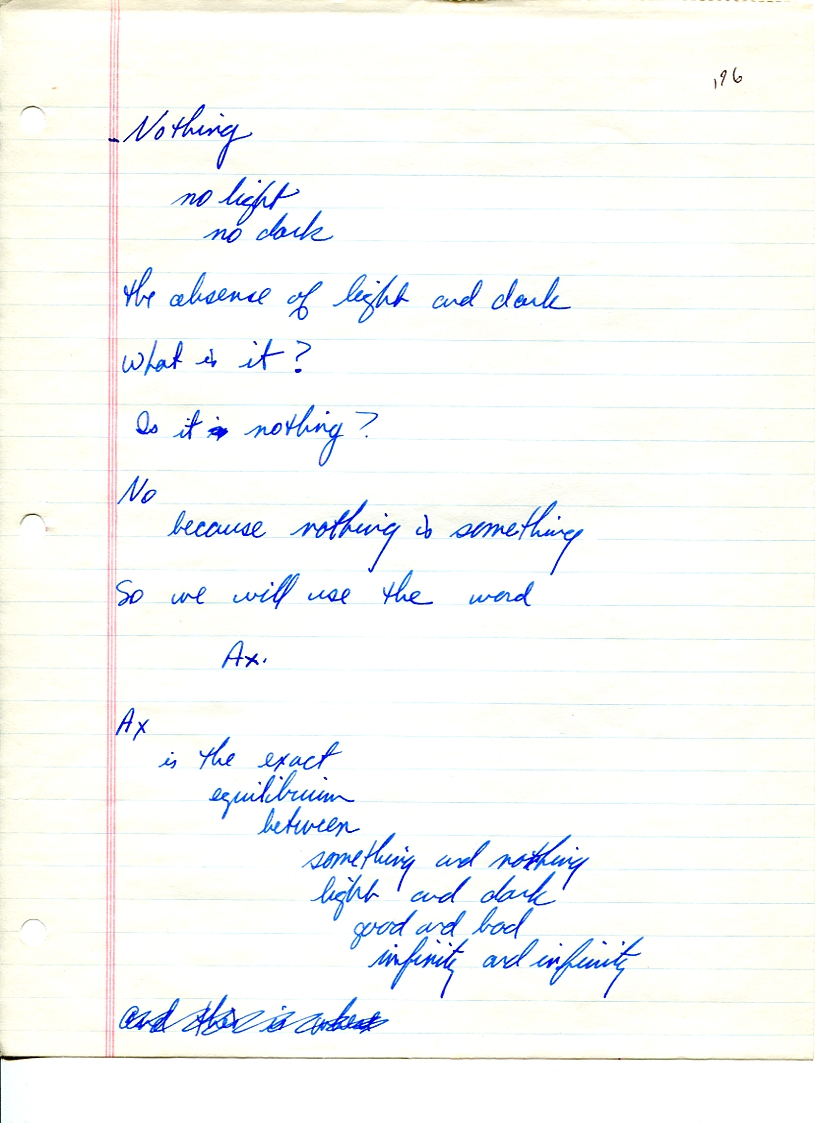 196
Nothing
no light
no dark
the absense of light and dark
What is it?
Is it is nothing?
No
because nothing is something
So we will use the word
Ax.
Ax
is the exact
equilibrium
between
something and nothing
light and dark
good and bad
infinity and infinity
and this is what